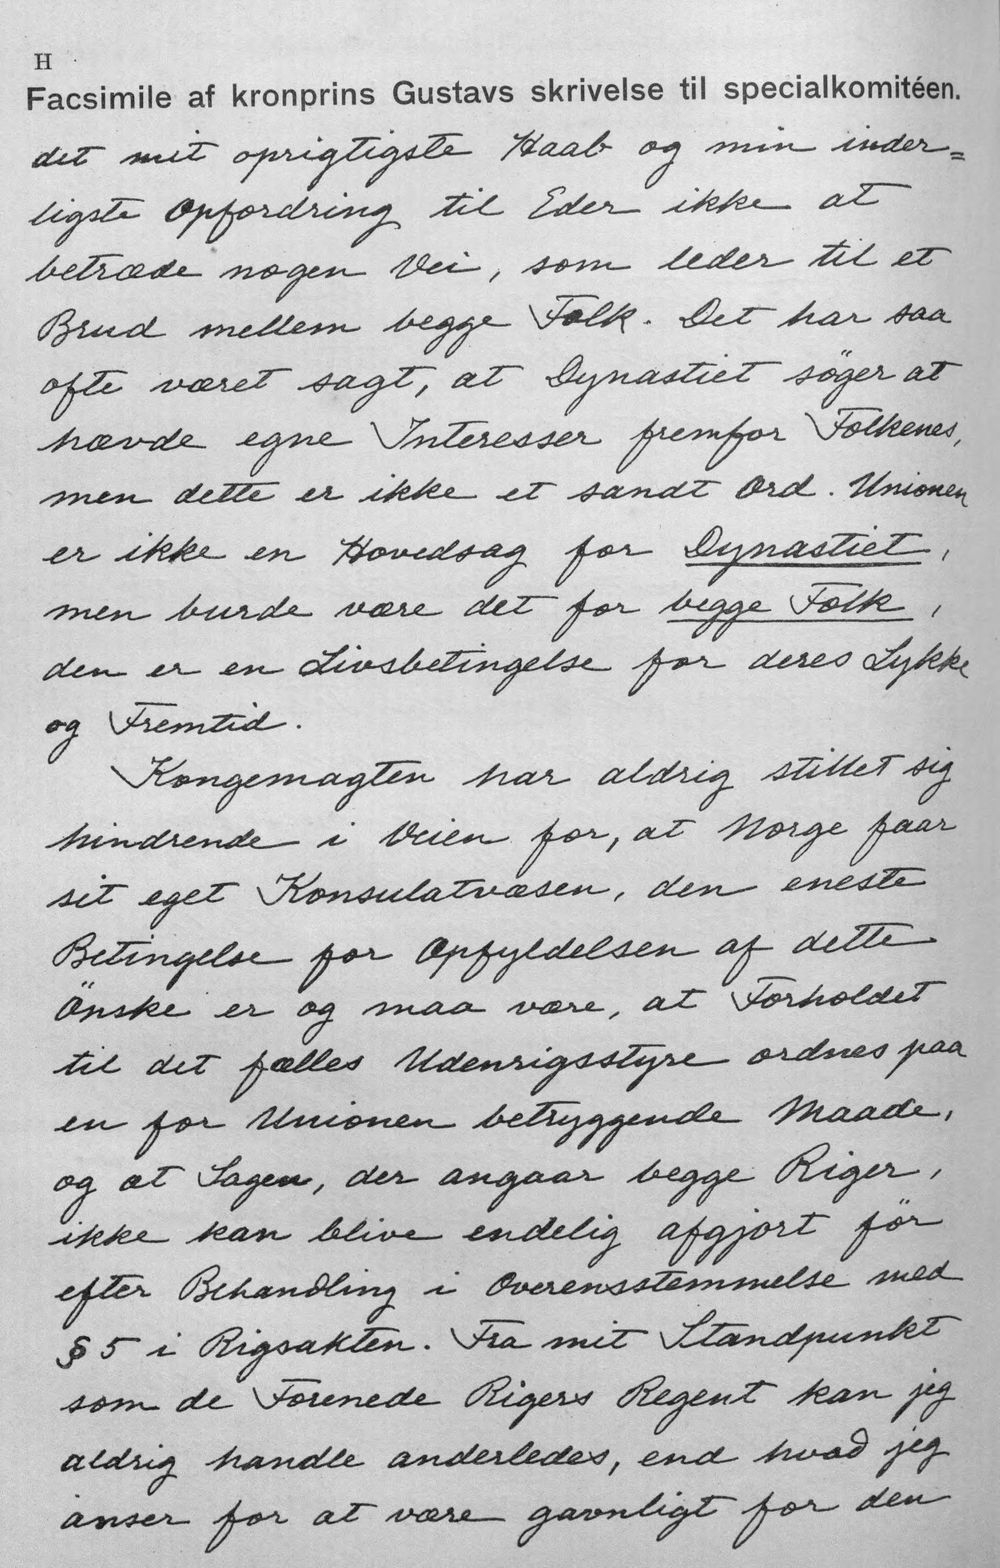 H
Facsimile af kronprins Gustavs skrivelse til specialkomitéen.
det mit oprigtigste Haab og min inder=
ligste Opfordring til Eder ikke at
betræde nogen Vei, som leder til et
Brud mellem begge Folk. Det har saa
ofte været sagt, at Dynastiet söger at
hævde egne Interesser fremfor Folkenes,
men dette er ikke et sandt Ord. Unionen
er ikke en Hovedsag for Dynastiet,
men burde være det for begge Folk,
den er en Livsbetingelse for deres Lykke
og Fremtid.
Kongemagten har aldrig stillet sig
hindrende i Veien for, at Norge faar
sit eget Konsulatvæsen, den eneste
Betingelse for Opfyldelsen af dette
Önske er og maa være, at Forholdet
til det fælles Udenrigsstyre ordnes paa
en for Unionen betryggende Maade,
og at Sagen, der angaar begge Riger,
ikke kan blive endelig afgjort för
efter Behandling i Overensstemmelse med
§ 5 i Rigsakten. Fra mit Standpunkt
som de Forenede Rigers Regent kan jeg
aldrig handle anderledes, end hvad jeg
anser for at være gavnligt for den